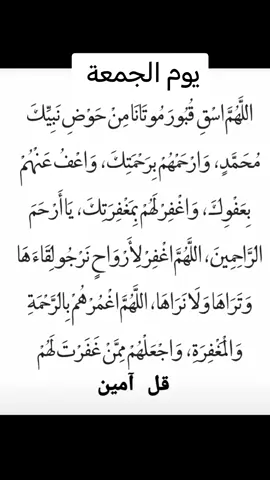 يوم الجمعة
اللَّهُمَّ اسْقِ قُبُورَ مُوتَانَا مِنْ حَوْضِ نَبِيِّكَ
مُحَمَّدٍ، وَارْحَمْهُمْ بِرَحْمَتِكَ، وَاعْفُ عَنْهُمْ
بِعَفْوِكَ، وَاغْفِرْ لَهُمْ بِمَغْفِرَتِكَ، يَا أَرْحَمَ
الرَّاحِمِينَ، اللَّهُمَّ اغْفِرْ لِأَرْوَاحٍ نَرْجُو لِقَاءَهَا
وَتَرَاهَا وَلَا نَرَاهَا، اللَّهُمَّ اغْمُرْهُمْ بِالرَّحْمَةِ
وَالْمَغْفِرَةِ، وَاجْعَلْهُمْ مِمَّنْ غَفَرْتَ لَهُمْ
قل آمين